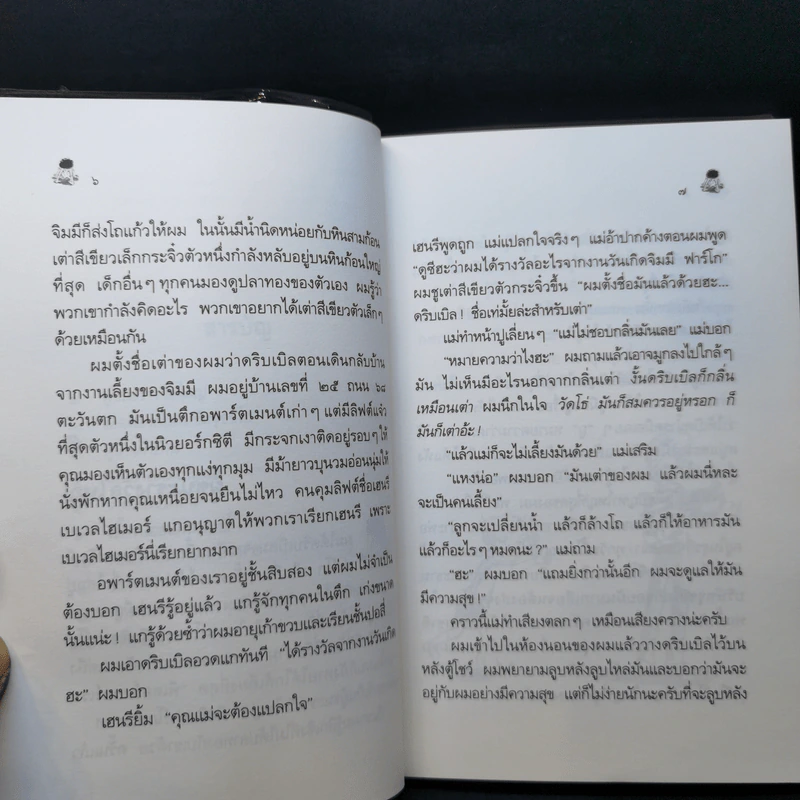 ๖
จิมมีก็ส่งโถแก้วให้ผม ในนั้นมีน้ำนิดหน่อยกับหินสามก้อน
เต่าสีเขียวเล็กกระจิ๋วตัวหนึ่งกำลังหลับอยู่บนหินก้อนใหญ่
ที่สุด เด็กอื่นๆ ทุกคนมองดูปลาทองของตัวเอง ผมรู้ว่า
พวกเขากำลังคิดอะไร พวกเขาอยากได้เต่าสีเขียวตัวเล็กๆ
ด้วยเหมือนกัน
ผมตั้งชื่อเต่าของผมว่าดริบเบิลตอนเดินกลับบ้าน
จากงานเลี้ยงของจิมมี ผมอยู่บ้านเลขที่ ๒๕ ถนน ๖๘
ตะวันตก มันเป็นตึกอพาร์ตเมนต์เก่าๆ แต่มีลิฟต์แจ๋ว
ที่สุดตัวหนึ่งในนิวยอร์กซิตี มีกระจกเงาติดอยู่รอบๆ ให้
คุณมองเห็นตัวเองทุกแง่ทุกมุม มีม้ายาวบุนวมอ่อนนุ่มให้
นั่งพักหากคุณเหนื่อยจนยืนไม่ไหว คนคุมลิฟต์ชื่อเฮนรี
เบเวลไฮเมอร์ แกอนุญาตให้พวกเราเรียกเฮนรี เพราะ
เบเวลไฮเมอร์นี่เรียกยากมาก
อพาร์ตเมนต์ของเราอยู่ชั้นสิบสอง แต่ผมไม่จำเป็น
ต้องบอก เฮนรีรู้อยู่แล้ว แกรู้จักทุกคนในตึก เก่งขนาด
นั้นแน่ะ! แกรู้ด้วยซ้ำว่าผมอายุเก้าขวบและเรียนชั้นปอสี่
ผมเอาดริบเบิลอวดแกทันที “ได้รางวัลจากงานวันเกิด
ฮะ” ผมบอก
เฮนรียิ้ม “คุณแม่จะต้องแปลกใจ”
๗
เฮนรีพูดถูก แม่แปลกใจจริงๆ แม่อ้าปากค้างตอนผมพูด
“ดูซีฮะว่าผมได้รางวัลอะไรจากงานวันเกิดจิมมี ฟาร์โก”
ผมชูเต่าสีเขียวตัวกระจิ๋วขึ้น “ผมตั้งชื่อมันแล้วด้วยฮะ...
ดริบเบิล! ชื่อเท่มั้ยล่ะสำหรับเต่า”
แม่ทำหน้าปูเลี่ยนๆ “แม่ไม่ชอบกลิ่นมันเลย” แม่บอก
“หมายความว่าไงฮะ” ผมถามแล้วเอาจมูกลงไปใกล้ๆ
มัน ไม่เห็นมีอะไรนอกจากกลิ่นเต่า งั้นดริบเบิลก็กลิ่น
เหมือนเต่า ผมนึกในใจ วัดโธ่ มันก็สมควรอยู่หรอก ก็
มันก็เต่าอ้ะ!
“แล้วแม่ก็จะไม่เลี้ยงมันด้วย” แม่เสริม
“แหงน่อ” ผมบอก “มันเต่าของผม แล้วผมนี่หละ
จะเป็นคนเลี้ยง”
“ลูกจะเปลี่ยนน้ำ แล้วก็ล้างโถ แล้วก็ให้อาหารมัน
แล้วก็อะไรๆ หมดนะ?” แม่ถาม
“ฮะ” ผมบอก “แถมยิ่งกว่านั้นอีก ผมจะดูแลให้มัน
มีความสุข!”
คราวนี้แม่ทำเสียงตลกๆ เหมือนเสียงครางน่ะครับ
ผมเข้าไปในห้องนอนของผมแล้ววางดริบเบิลไว้บน
หลังตู้โชว์ ผมพยายามลูบหลังลูบไหล่มันและบอกว่ามันจะ
อยู่กับผมอย่างมีความสุข แต่ก็ไม่ง่ายนักนะครับที่จะลูบหลัง